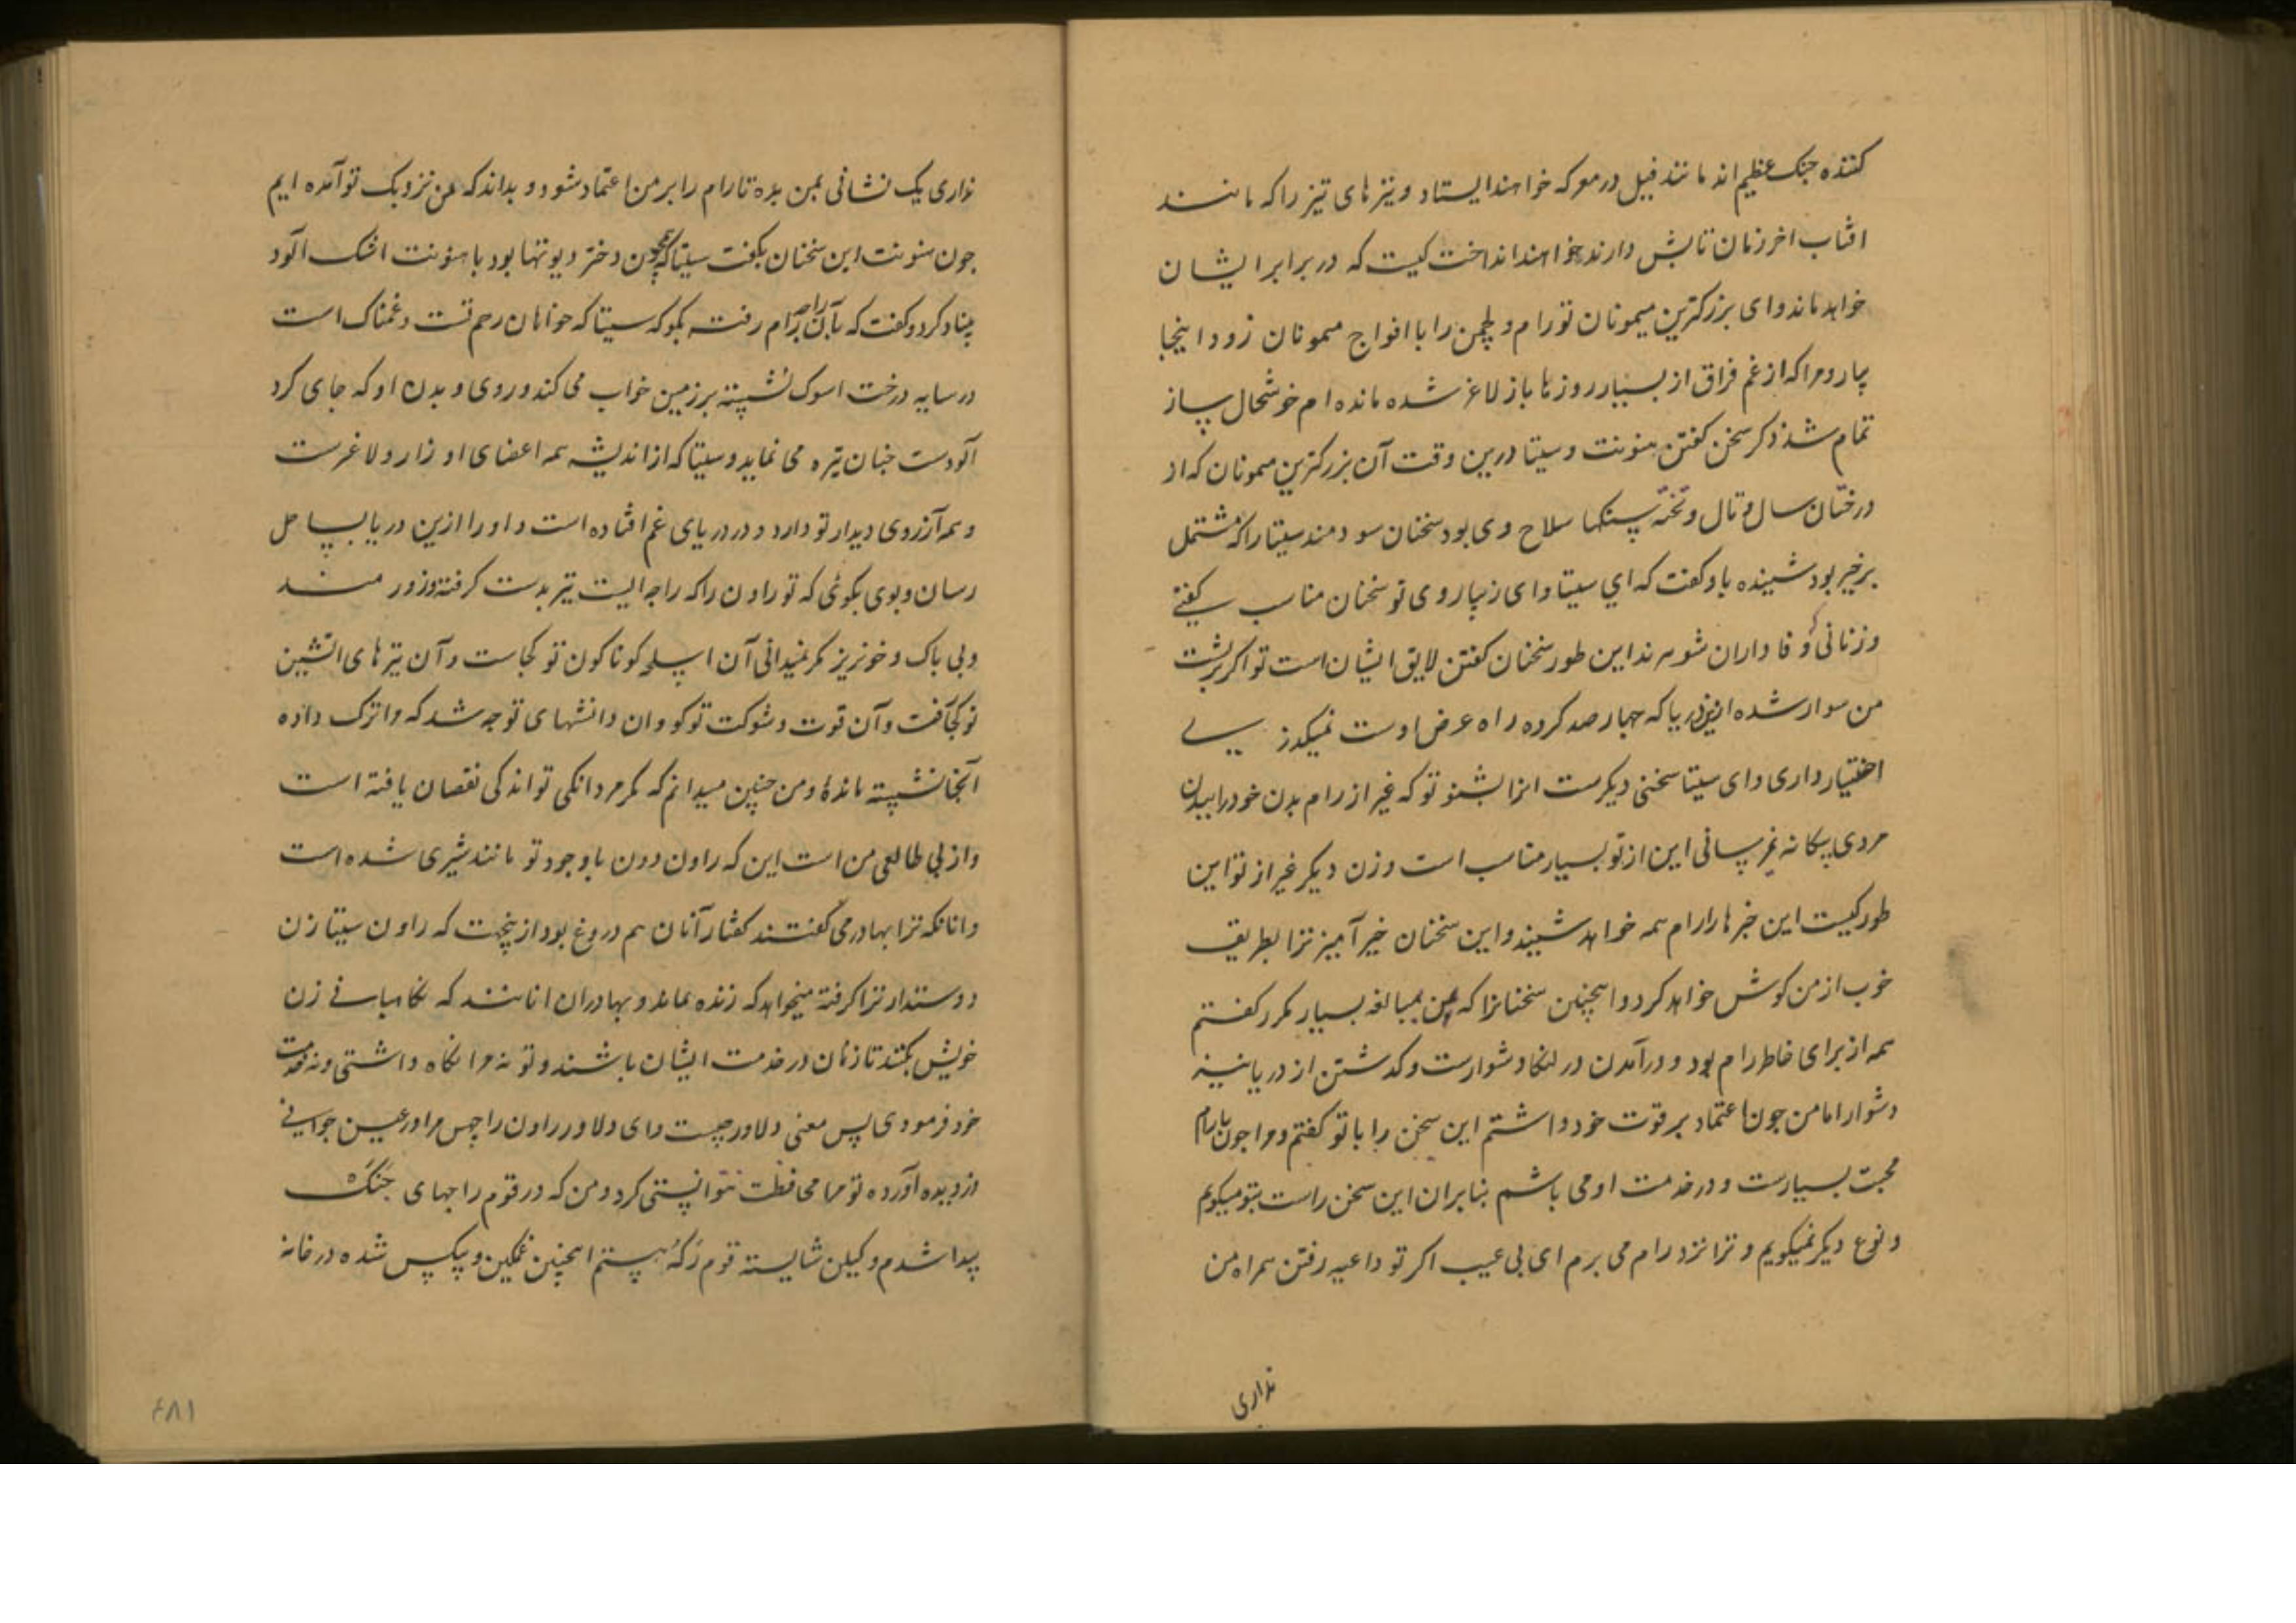 کننده جنک عظیم اند مانند فیل در معرکه خواهند ایستاد و تیرهای تیز را که مانند
افتاب اخر زمان تابش دارند خواهند انداخت کیست که در برابر ایشان
خواهد ماند و ای بزرکترین میمونان تو رام و لچمن را با افواج میمونان زود اینجا
بیار و مرا که از غم فراق از بسیار روزها باز لاغر شده مانده ام خوشحال بساز
تمام شد ذکر سخن کفتن هنونت و سیتا درین وقت آن بزرکترین میمونان که از
درختان سال و تال و تخته سنکها سلاح وی بود سخنان سودمند سیتا را که مشتمل
بر خیر بود شنیده باو کفت که ای سیتا و ای زیبا روی تو سخنان مناسب کفتی
و زنانی که وفاداران شوهرند این طور سخنان کفتن لایق ایشان است تو اکر بر پشت
من سوار شده ازین دریا که چهار صد کروه راه عرض اوست نمیکذری
اختیار داری و ای سیتا سخنی دیکر ست انرا بشنو تو که غیر از رام بدن خود را ببدن
مردی بیکانه نمیرسانی این از تو بسیار مناسب است و زن دیکر غیر از تو این
طور کیست این خبرها را رام همه خواهد شنید و این سخنان خیر آمیز ترا بطریق
خوب از من کوش خواهد کرد و اینچنین سخنانرا که من بمبالغه بسیار مکرر کفتم
همه از برای خاطر رام بود و درآمدن در لنکا دشوارست و کذشتن از دریا نیز
دشوار اما من چون اعتماد بر قوت خود داشتم این سخن را با تو کفتم و مرا چون با رام
محبت بسیارست و در خدمت او می باشم بنابران این سخن راست بتو میکویم
و نوع دیکر نمیکویم و ترا نزد رام می برم ای بی عیب اکر تو داعیه رفتن همراه من
نداری
نداری یک نشانی بمن بده تا رام را بر من اعتماد شود و بداند که من نزدیک تو آمده ایم
چون هنونت این سخنان بکفت سیتا که همچون دختر دیوتها بود با هنونت اشک آلود
بنیاد کرد و کفت که بآن راجه رام رفته بکو که سیتا که خواهان رحم تست و غمناک است
در سایه درخت اسوک نشسته بر زمین خواب می کند و روی و بدن او که جای کرد
آلودست چنان تیره می نماید و سیتا که از اندیشه همه اعضای او زار و لاغرست
و همه آرزوی دیدار تو دارد و در دریای غم افتاده است و او را ازین دریا بساحل
رسان و بوی بکوئی که تو راون را که راجه ایست تیر بدست کرفته و زورمند
و بی باک و خونریز مکر نمیدانی آن اسلحه کوناکون تو کجاست و آن تیرهای اتشین
تو کجا رفت و آن قوت و شوکت تو کو و ان دانشهای تو چه شد که مرا ترک داده
آنجا نشسته مانده و من چنین میدانم که مکر مردانکی تو اندکی نقصان یافته است
و از بی طالعی من است این که راون دون با وجود تو مانند شیری شده است
و انانکه ترا بهادر می کفتند کفتار آنان هم دروغ بود ازینجهت که راون سیتا زن
دوستدار ترا کرفته میخواهد که زنده بماند و بهادران انانند که نکاهبانی زن
خویش بکنند تا زنان در خدمت ایشان باشند و تو نه مرا نکاه داشتی و نه خدمت
خود فرمودی پس معنی دلاور چیست و ای دلاور راون را چس مرا در عین جوانی
دزدیده آورده تو مرا محافظت نتوانستی کرد و من که در قوم راجهای جنک
پیدا شدم و لیکن شایسته قوم رکه هستم اینچنین غمکین و بیکس شده در خانه
۴۸۱